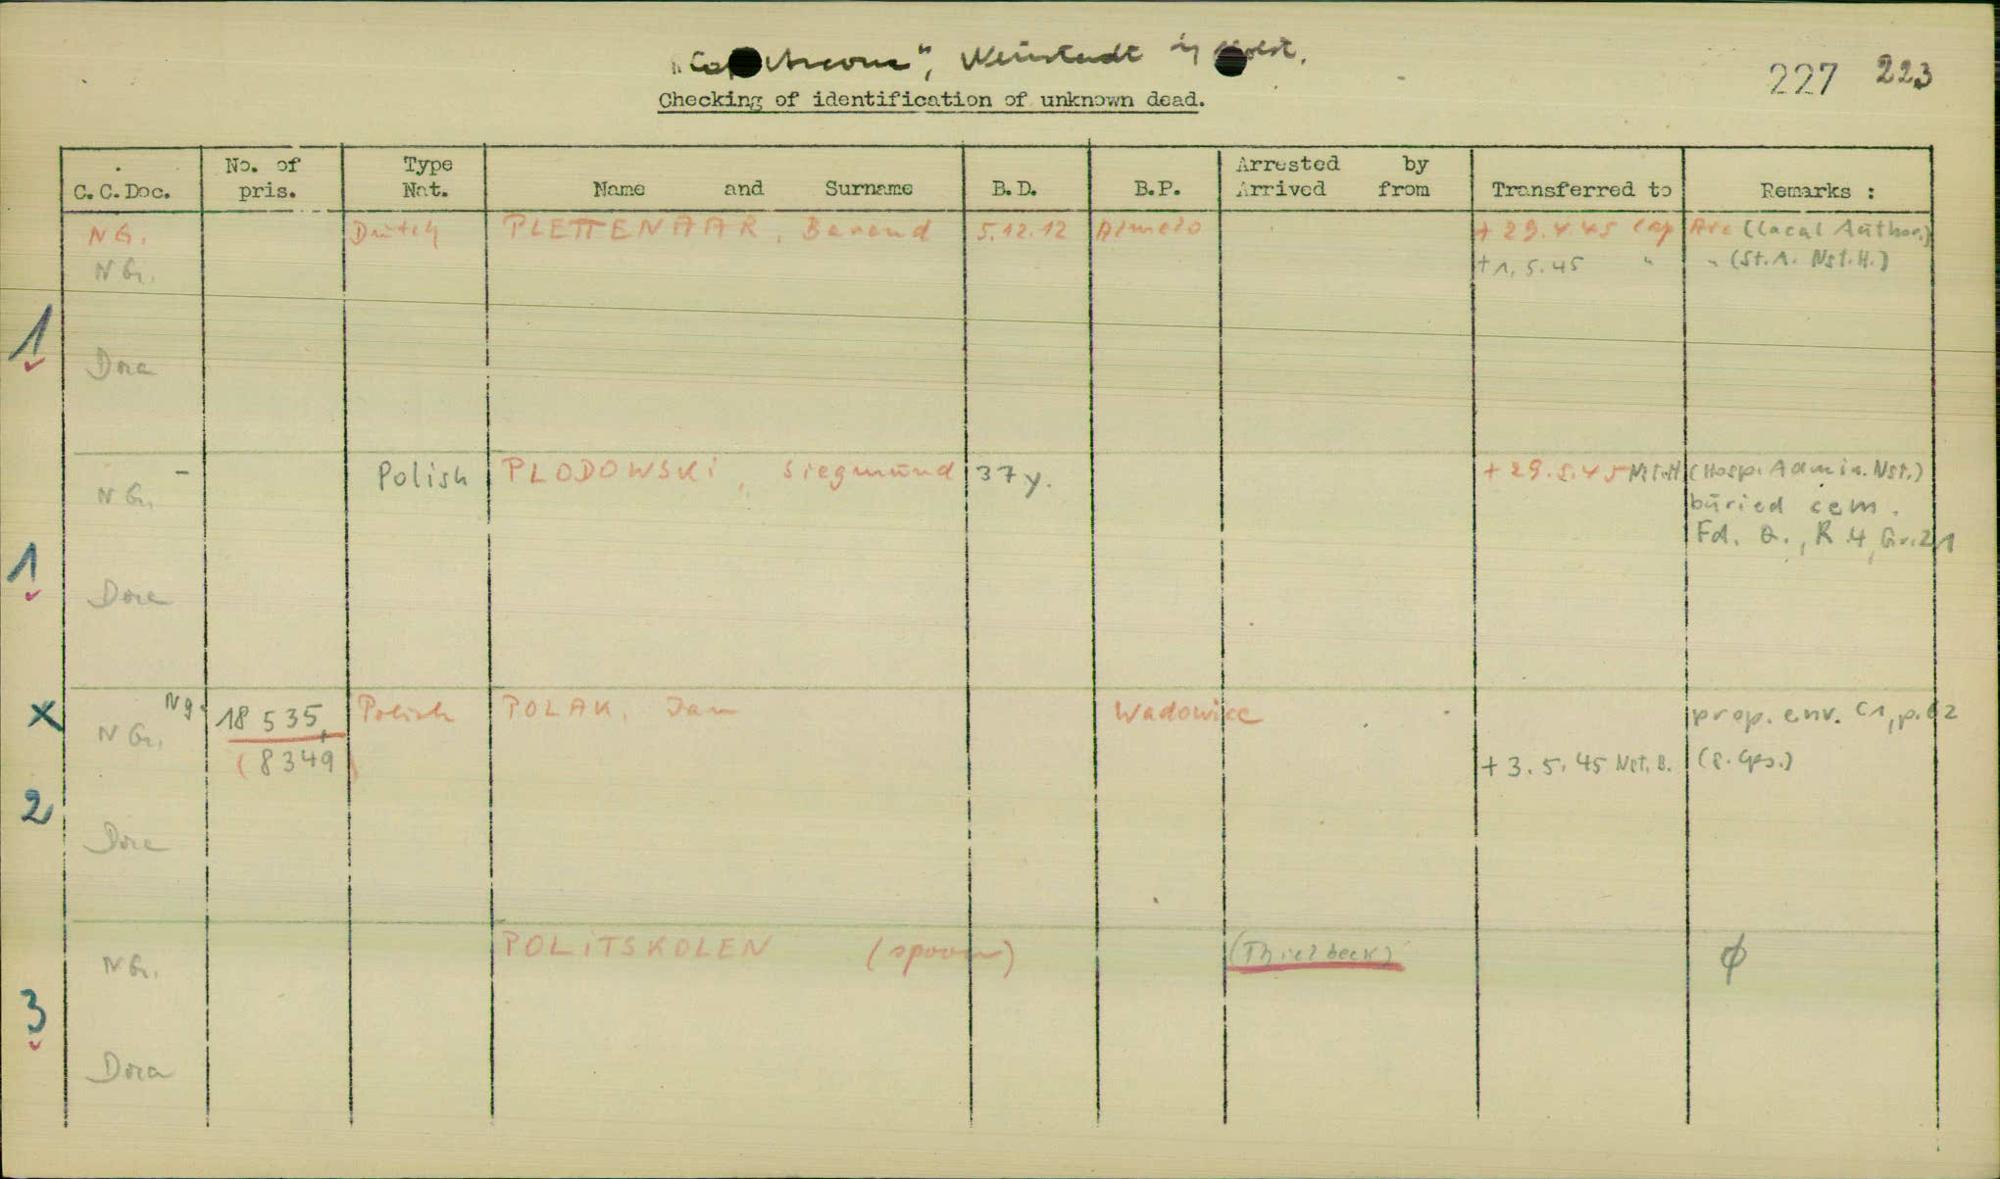 "Cap Arcona", Neustadt in Holst.
227 223
Checking of identification of unknown dead.
C.C.Doc. No. of pris. Type Nat. Name and Surname B.D. B.P. Arrested by Arrived from Transferred to Remarks :
NG. Dutch PLETTENAAR, Berend 5.12.12 Almelo + 29.4.45 Cap Arc (Local Author.)
N G. + 1.5.45 " " (St.A. Nst.H.)
1
Dora
N G. - Polish PLODOWSKI, Siegmund 37 y. + 29.5.45 Nst.H (Hosp. Admin. Nst.)
buried cem.
Fd. Q., R 4, Gr. 21
1
Dora
x N G. Ng. 18 535 Polish POLAK, Jan Wadowice prop. env. C1, p. 62
(8349) + 3.5.45 Nst. B.
2
Dora
N G. POLITSKOLEN (spoon) (Thielbeck) ϕ
3
Dora